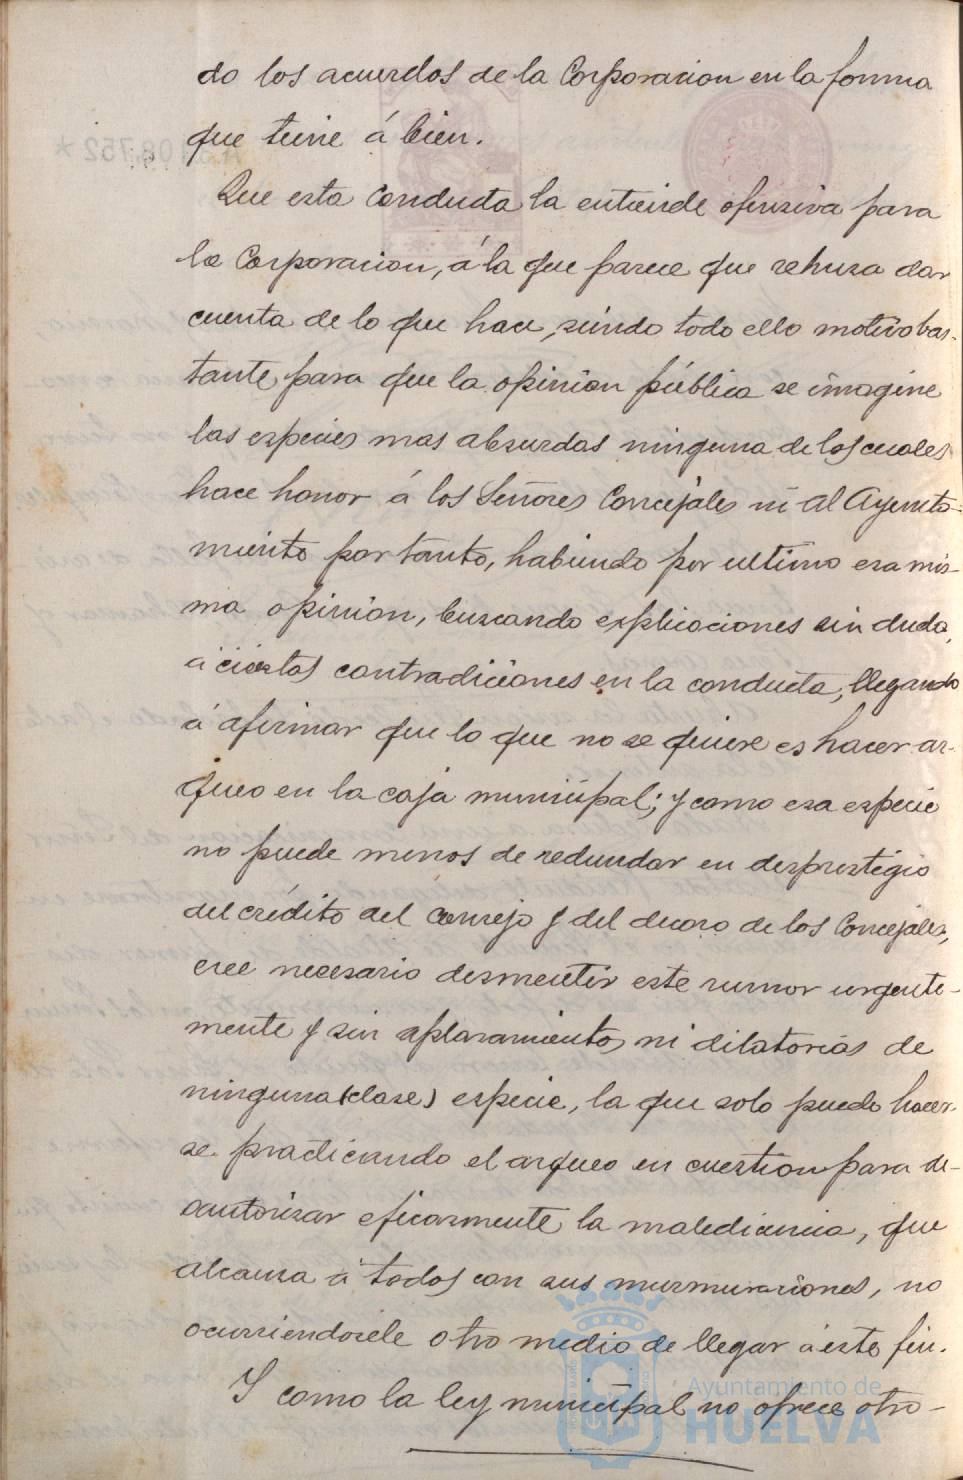 do los acuerdos de la Corporacion en la forma
que tiene á bien.
Que esta conducta la entiende ofensiva para
la Corporacion, á la que parece que rehusa dar
cuenta de lo que hace, siendo todo ello motivo bas-
tante para que la opinion pública se imagine
las especies mas absurdas ninguna de las cuales
hace honor á los Señores Concejales ni al Ayunta-
miento por tanto, habiendo por ultimo esa mis-
ma opinion, buscando esplicaciones sin duda,
á ciertas contradiciones en la conducta, llegando
á afirmar que lo que no se quiere es hacer ar-
queo en la caja municipal; y como esa especie
no puede menos de redundar en desprestigio
del crédito del consejo y del decoro de los Concejales,
cree necesario desmentir este rumor urgente-
mente y sin aplazamientos ni dilatorias de
ninguna (clase) especie, la que solo puede hacer-
se practicando el arqueo en cuestion para de-
sautorizar eficazmente la maledicencia, que
alcanza á todos con sus murmuraciones, no
ocurriendosele otro medio de llegar á este fin.
Y como la ley municipal no ofrece otro-
Ayuntamiento de
HUELVA